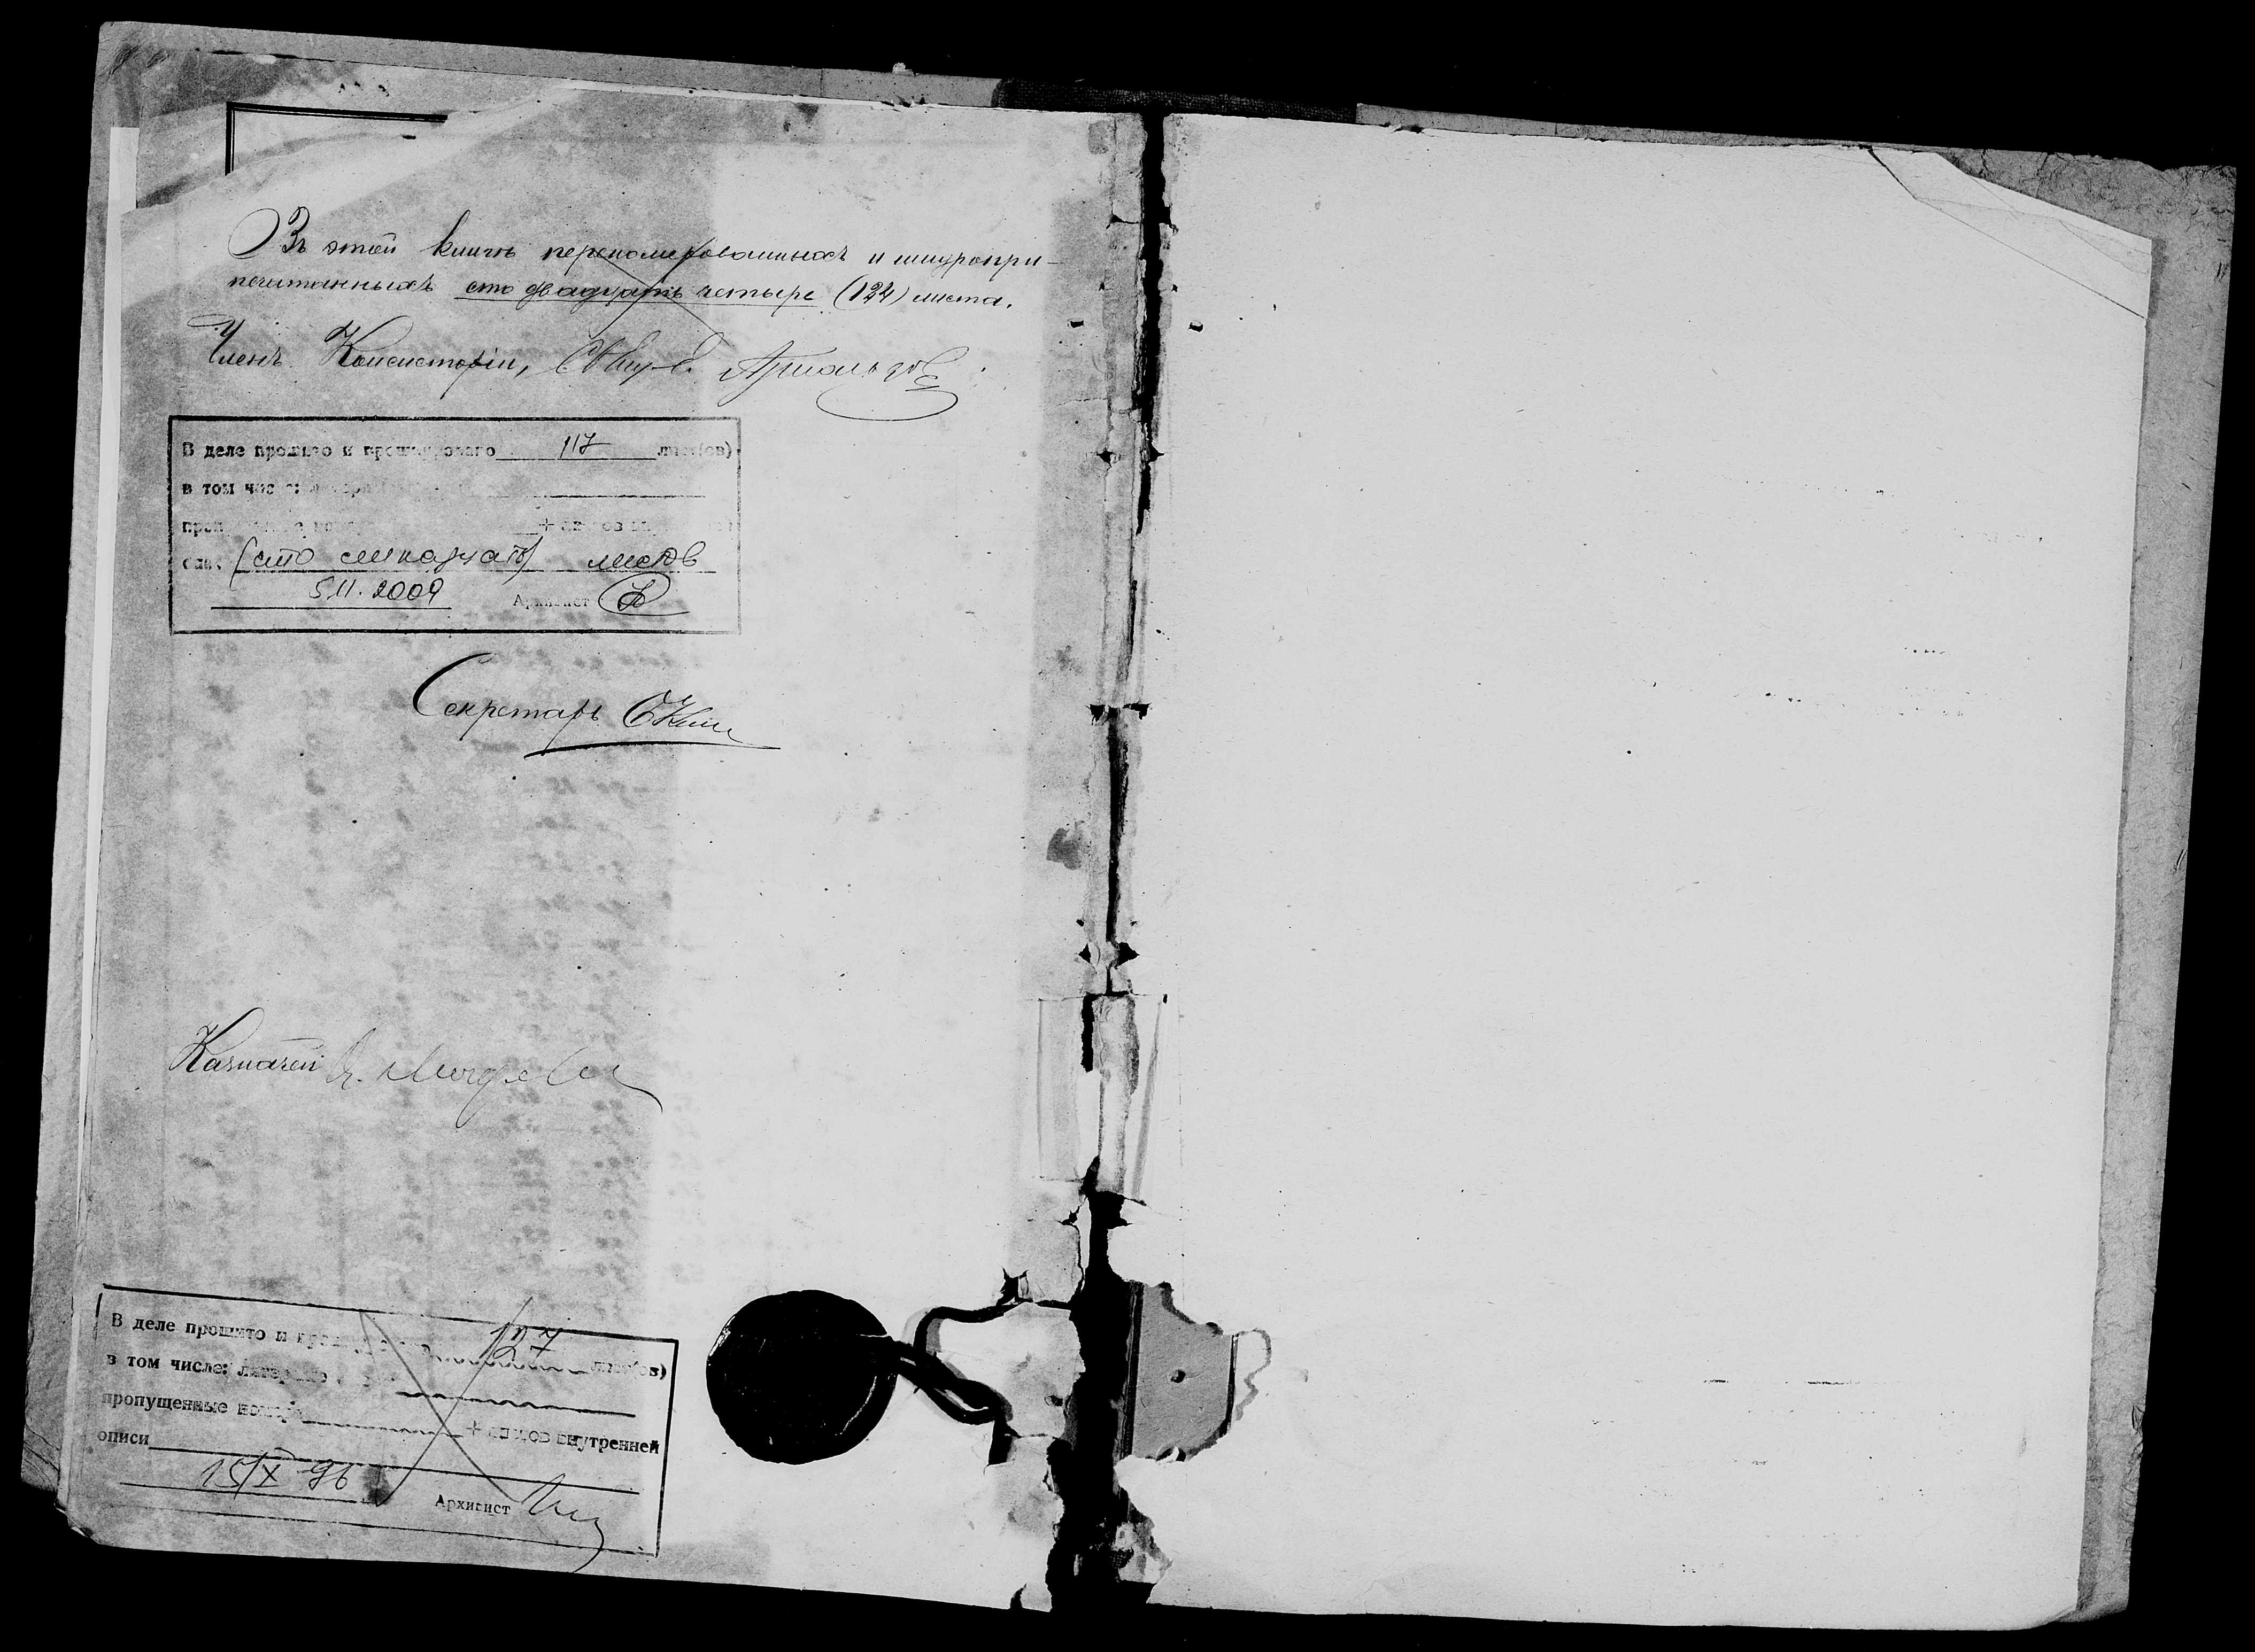 Въ этой книгѣ переномерованныхъ и шнуропри-
печатанныхъ сто двадцать четыре (124) листа.
Членъ Консисторіи,
В деле прошито и прошнуровано 117 лист(ов)
в том числе:
(сто семнадцать) листов
5.11.2009 Архивист
Секретарь
Казначей
В деле прошито и 127 лист(ов)
в том числе: литерные
пропущенные номера + листов внутренней
описи
15/X 96 Архивист